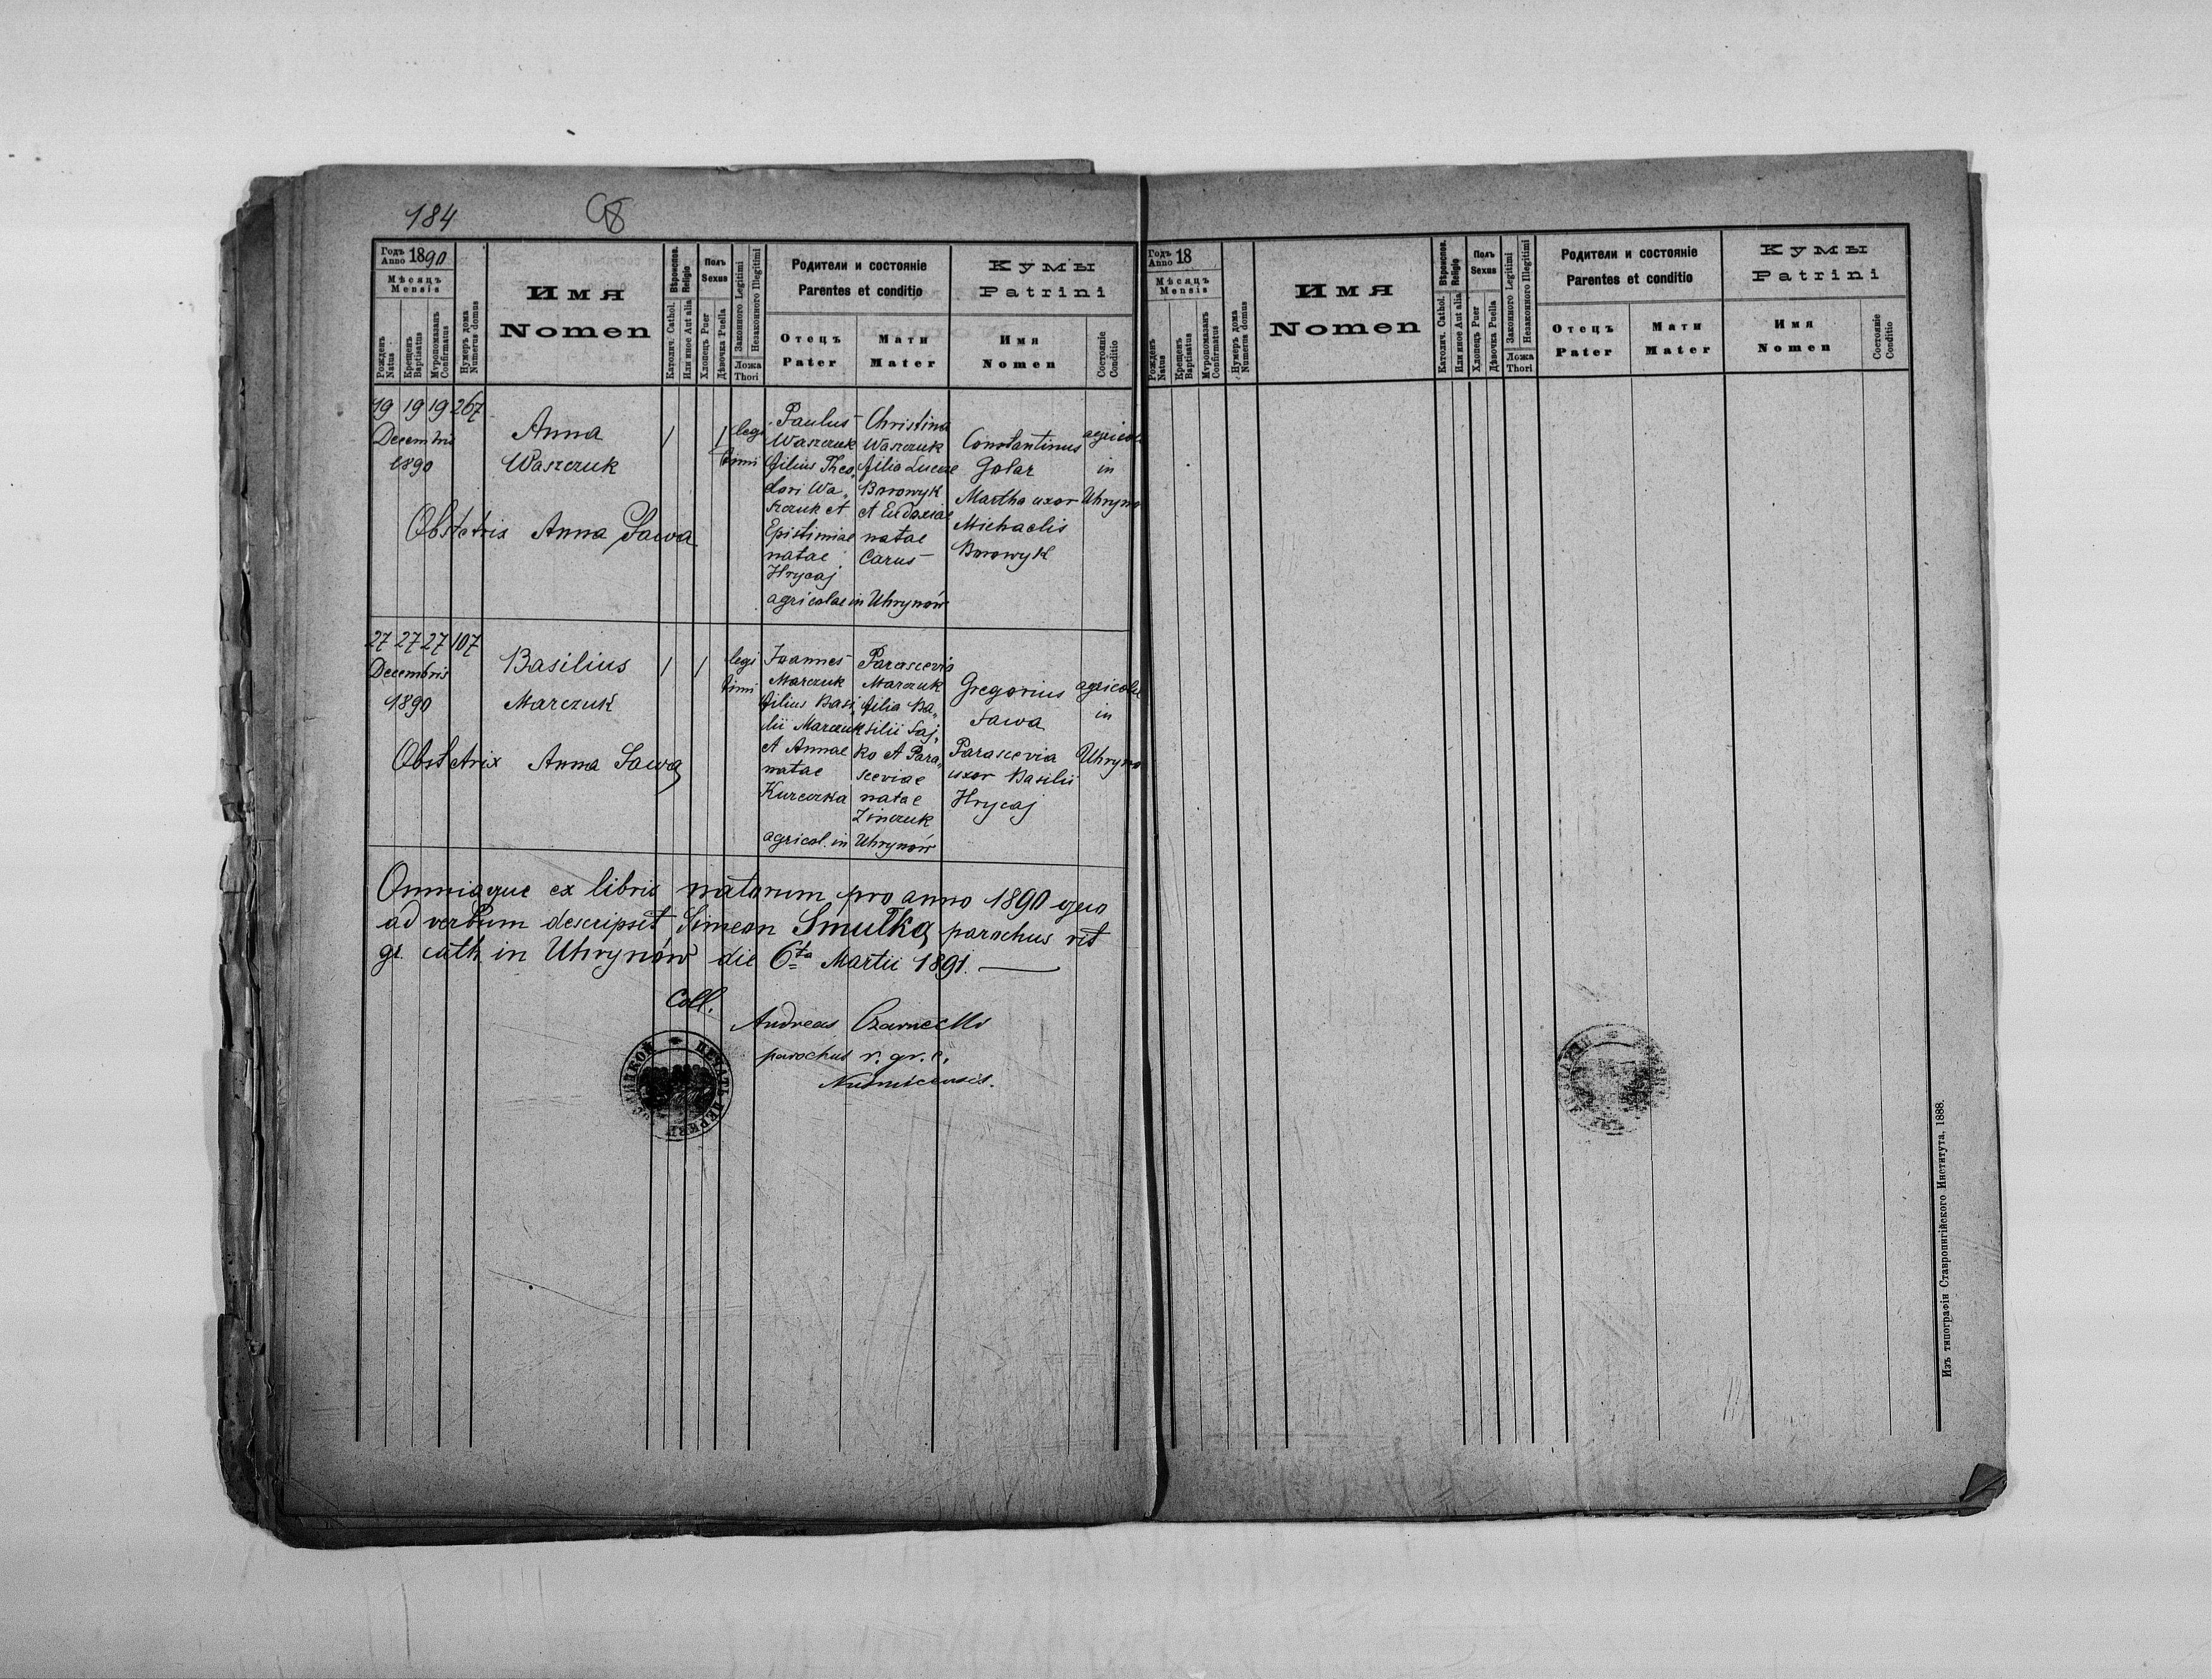 184
Годъ Anno 1890
Мѣсяцъ
Mensis
Рожденъ Natus
Крещенъ Baptisatus
Мѵропомазанъ Confirmatus
Нумеръ дома Numerus domus
Имя
Nomen
Вѣроисповѣд. Religio
Католич. Cathol.
Или иное Aut alia
Полъ
Sexus
Хлопецъ Puer
Дѣвочка Puella
Законного Legitimi
Незаконного Illegitimi
Ложа
Thori
Родители и состояніе
Parentes et conditio
Отецъ
Pater
Мати
Mater
Кумы
Patrini
Имя
Nomen
Состояніе
Conditio
19 19 19 267
Decembris
1890
Anna
Waszczuk
1
1
legi
timi
Paulus
Waszczuk
filius Theo
dori Wa„
szczuk et
Epistimiae
natae
Hrycaj
Christina
Waszczuk
filia Lucae
Borowyk
et Eudoxiae
natae
Carus
agricolae in Uhrynów
Constantinus
Golar
Martha uxor
Michaelis
Borowyk
agricolae
in
Uhrynow
Obstetrix Anna Sawa
27 27 27 107
Decembris
1890
Basilius
Marczuk
1
1
legi
timi
Joannes
Marczuk
filius Basi
lii Marczuk
et Annae
natae
Kurczka
Parascevia
Marczuk
filia Ba„
silii Saj„
ko et Para„
sceviae
natae
Zinczuk
agricol. in Uhrynów
Gregorius
Sawa
Parascevia
uxor Basilii
Hrycaj
agricolae
in
Uhrynow
Obstetrix Anna Sawa
Omniaque ex libris natorum pro anno 1890 quo
ad verbum descripsit Simeon Smulka parochus rit
gr. cath. in Uhrynów die 6ta Martii 1891.
Coll.
Andreas Czarnecki
parochus r. gr. c.
ПЕЧАТЬ ЦЕРКВИ
Годъ Anno 18
Мѣсяцъ
Mensis
Рожденъ Natus
Крещенъ Baptisatus
Мѵропомазанъ Confirmatus
Нумеръ дома Numerus domus
Имя
Nomen
Вѣроисповѣд. Religio
Католич. Cathol.
Или иное Aut alia
Полъ
Sexus
Хлопецъ Puer
Дѣвочка Puella
Законного Legitimi
Незаконного Illegitimi
Ложа
Thori
Родители и состояніе
Parentes et conditio
Отецъ
Pater
Мати
Mater
Кумы
Patrini
Имя
Nomen
Состояніе
Conditio
Изъ типографіи Ставропигійского Института, 1888.